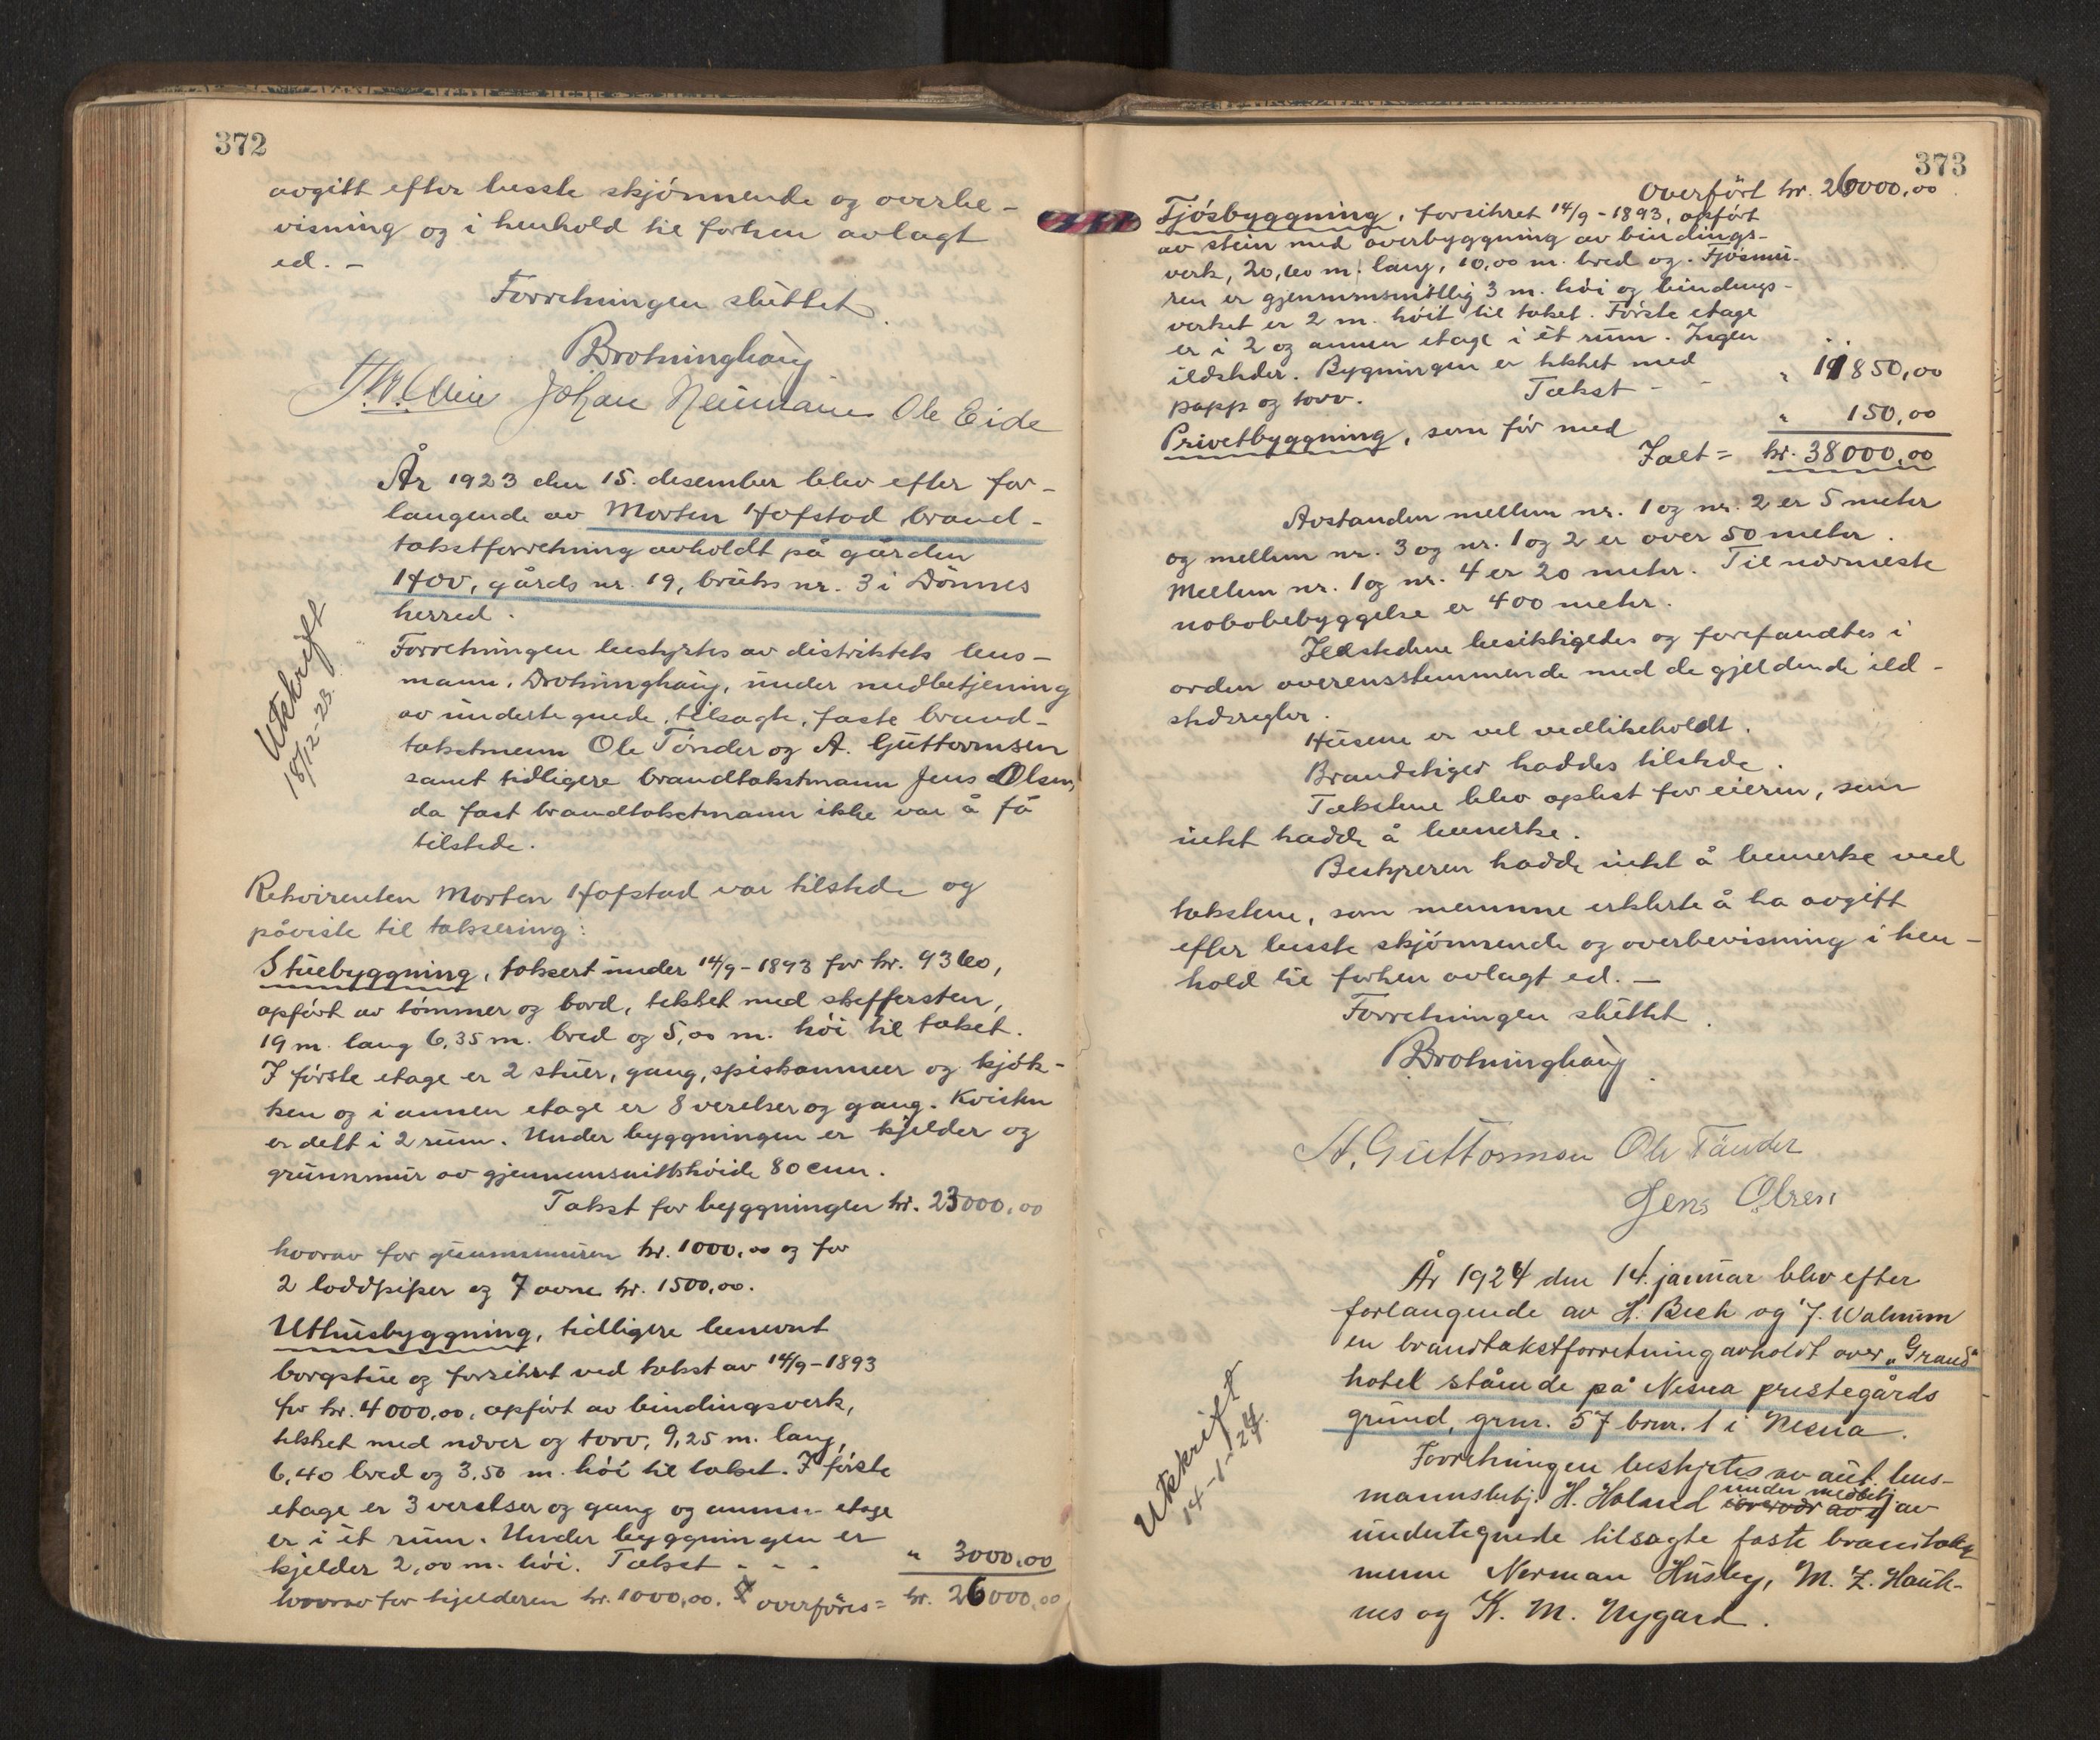 372
avgitt efter beste skjønnende og overbe-
visning og i henhold til forhen avlagt
ed. -
Forretningen sluttet.
BDrotninghaug
Johan Neumann Ole Eide
År 1923 den 15. desember blev efter for-
langende av Morten Hofstad brand-
takstforretning avholdt på gården
Hov, gårds nr. 19, bruks nr. 3 i Dønnes
herred.
Utskrift
18/12-23.
Forretningen bestyrtes av distriktets lens-
mann, Drotninghaug, under medbetjening
av undertegnede, tilsagte, faste brand-
takstmenn Ole Tønder og A. Guttormsen
samt tidligere brandtakstmann Jens Olsen,
da fast brandtakstmann ikke var å få
tilstede.
Rekvirenten Morten Hofstad var tilstede og
påviste til taksering:
Stuebyggning, taksert under 14/9-1893 for kr. 9360,
opført av tømmer og bord, tekket med skeffersten,
19 m. lang 6,35 m. bred og 5,00 m. høi til taket.
I første etage er 2 stuer, gang, spiskammer og kjøk-
ken og i annen etage er 8 verelser og gang. Kvisten
er delt i 2 rum. Under byggningen er kjelder og
grunnmur av gjennemsnittshøide 80 cm.
Takst for byggningen kr. 23000,00
hvorav for grunnmuren kr. 1000,00 og for
2 loddpiper og 7 ovne kr. 1500,00.
Uthusbyggning, tidligere benevnt
borgstue og forsikret ved takst av 14/9-1893
for kr. 4000,00, opført av bindingsverk,
tekket med never og torv, 9,25 m. lang,
6,40 bred og 3,50 m. høi til taket. I første
etage er 3 verelser og gang og annen etage
er i ét rum. Under byggningen er
kjelder 2,00 m. høi. Takst - - - " 3000,00
hvorav for kjelderen kr. 1000,00. overføres = kr. 26000,00
373
Overført kr. 26000,00
Fjøsbyggning, forsikret 14/9-1893, opført
av stein med overbyggning av bindings-
verk, 20,60 m. lang, 10,00 m. bred og. Fjøsmu-
ren er gjennemsnittlig 3 m. høi og bindings-
verket er 2 m. høit til taket. Første etage
er i 2 og annen etage i ét rum. Ingen
ildsteder. Bygningen er tekket med
papp og torv. Takst - - " 11850,00
Privetbyggning, som før med " 150,00
Ialt = kr. 38000,00
Avstanden mellem nr. 1 og nr. 2 er 5 meter
og mellem nr. 3 og nr. 1 og 2 er over 50 meter.
Mellem nr. 1 og nr. 4 er 20 meter. Til nærmeste
nabobebyggelse er 400 meter.
Ildstedene besiktigedes og forefandtes i
orden overensstemmende med de gjeldende ild-
stedsregler.
Husene er vel vedlikeholdt.
Brandstiger haddes tilstede.
Takstene blev oplest for eieren, som
intet hadde å bemerke.
Bestyreren hadde intet å bemerke ved
takstene, som mennene erklerte å ha avgitt
efter beste skjønnende og overbevisning i hen-
hold til forhen avlagt ed. -
Forretningen sluttet.
BDrotninghaug
A. Guttormsen Ole Tønder
Jens Olsen
År 1924 den 14. januar blev efter
forlangende av H. Bech og J. Walnum
en brandtakstforretning avholdt over „Grand"
hotel stående på Nesna prestegårds
grund, grnr. 57 brnr. 1 i Nesna.
Utskrift
14-1-24.
Forretningen bestyrtes av aut. lens-
mannsbetj. H. Haland under medbetj. av
undertegnede tilsagte faste brandtakst
menn Norman Husby, M. Z. Hauk-
nes og K. M. Nygard.